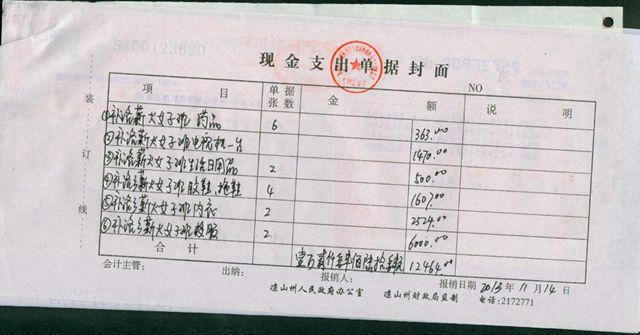 现金支出单据封面
NO
项 目 单据张数 金 额 说 明
①补给薪火女子班 药品 6 363.00
②补给薪火女子班电视机一台 1470.00
③补给薪火女子班生活日用品 2 500.00
④补给薪火女子班胶鞋、拖鞋 4 1607.00
⑤补给薪火女子班内衣 2 2524.00
⑥补给薪火女子班校服 2 6000.00
合计 壹万贰仟肆佰陆拾肆元 12464.00
装
订
线
会计主管: 出纳: 报销人: 报销日期 2013年11月14日
凉山州人民政府办公室 凉山州财政局监制 电话:2172771